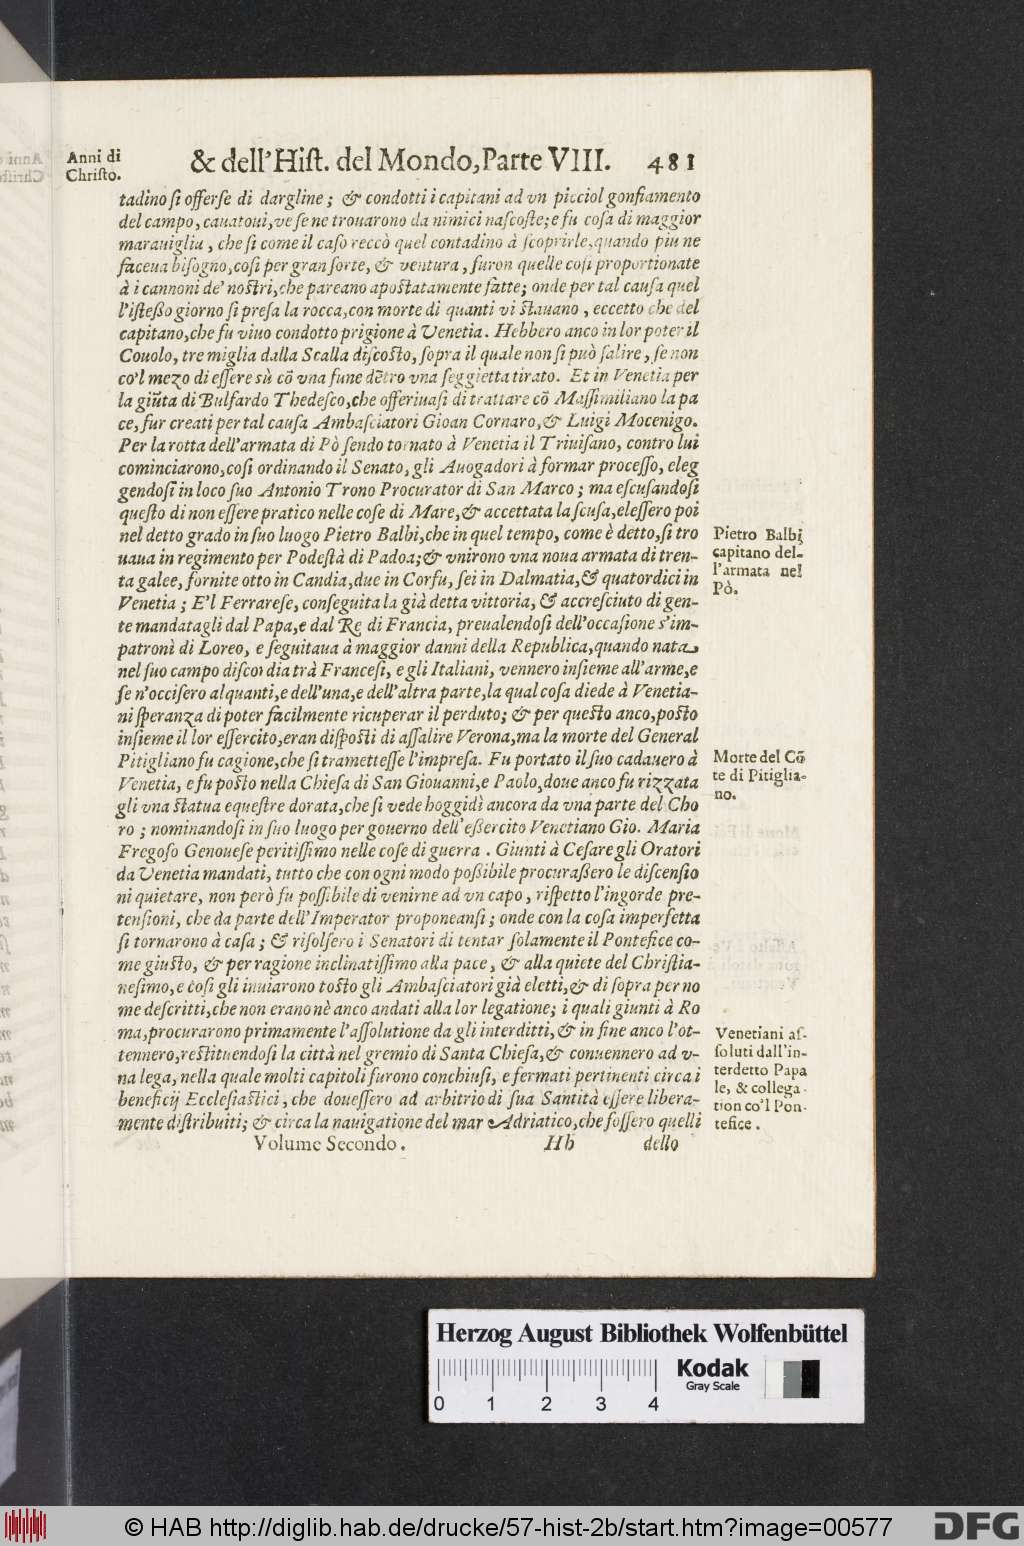 Anni di
Christo.
& dell'Hiſt. del Mondo, Parte VIII. 481
tadino ſi offerſe di dargline; & condotti i capitani ad vn picciol gonfiamento
del campo, cauatoui, ve ſe ne trouarono da nimici naſcoſte; e fu coſa di maggior
marauiglia, che ſi come il caſo reccò quel contadino à ſcoprirle, quando piu ne
faceua biſogno, coſi per gran ſorte, & ventura, furon quelle coſi proportionate
à i cannoni de' noſtri, che pareano apoſtatamente fatte; onde per tal cauſa quel
l'iſteßo giorno ſi preſa la rocca, con morte di quanti vi ſtauano, eccetto che del
capitano, che fu viuo condotto prigione à Venetia. Hebbero anco in lor poter il
Couolo, tre miglia dalla Scalla diſcoſto, ſopra il quale non ſi può ſalire, ſe non
co'l mezo di eſſere sù cõ vna fune dẽtro vna ſeggietta tirato. Et in Venetia per
la giũta di Bulfardo Thedeſco, che offeriuaſi di trattare cõ Maſſimiliano la pa
ce, fur creati per tal cauſa Ambaſciatori Gioan Cornaro, & Luigi Mocenigo.
Per la rotta dell'armata di Pò ſendo tornato à Venetia il Triuiſano, contro lui
cominciarono, coſi ordinando il Senato, gli Auogadori à formar proceſſo, eleg
gendoſi in loco ſuo Antonio Trono Procurator di San Marco; ma eſcuſandoſi
queſto di non eſſere pratico nelle coſe di Mare, & accettata la ſcuſa, eleſſero poi
nel detto grado in ſuo luogo Pietro Balbi, che in quel tempo, come è detto, ſi tro
uaua in regimento per Podeſtà di Padoa; & vnirono vna noua armata di tren-
ta galee, fornite otto in Candia, due in Corfu, ſei in Dalmatia, & quatordici in
Venetia; E'l Ferrareſe, conſeguita la già detta vittoria, & accreſciuto di gen-
te mandatagli dal Papa, e dal Re di Francia, preualendoſi dell'occaſione s'im-
patronì di Loreo, e ſeguitaua à maggior danni della Republica, quando nata
nel ſuo campo diſcordia trà Franceſi, e gli Italiani, vennero inſieme all'arme, e
ſe n'occiſero alquanti, e dell'una, e dell'altra parte, la qual coſa diede à Venetia-
ni ſperanza di poter facilmente ricuperar il perduto; & per queſto anco, poſto
inſieme il lor eſſercito, eran diſpoſti di aſſalire Verona, ma la morte del General
Pitigliano fu cagione, che ſi tramетteſſe l'impreſa. Fu portato il ſuo cadauero à
Venetia, e fu poſto nella Chieſa di San Giouanni, e Paolo, doue anco fu rizzata
gli vna ſtatua equeſtre dorata, che ſi vede hoggidì ancora da vna parte del Cho
ro; nominandoſi in ſuo luogo per gouerno dell'eßercito Venetiano Gio. Maria
Fregoſo Genoueſe peritiſſimo nelle coſe di guerra. Giunti à Ceſare gli Oratori
da Venetia mandati, tutto che con ogni modo poßibile procuraßero le diſcenſio
ni quietare, non però fu poſſibile di venirne ad vn capo, riſpetto l'ingorde pre-
tenſioni, che da parte dell'Imperator proponeanſi; onde con la coſa imperfetta
ſi tornarono à caſa; & riſolſero i Senatori di tentar ſolamente il Pontefice co-
me giuſto, & per ragione inclinatiſſimo alla pace, & alla quiete del Chriſtia-
neſimo, e coſi gli inuiarono toſto gli Ambaſciatori già eletti, & di ſopra per no
me deſcritti, che non erano nè anco andati alla lor legatione; i quali giunti à Ro
ma, procurarono primamente l'aſſolutione da gli interditti, & in fine anco l'ot-
tennero, reſtituendoſi la città nel gremio di Santa Chieſa, & conuennero ad v-
na lega, nella quale molti capitoli furono conchiuſi, e fermati pertinenti circa i
beneficij Eccleſiaſtici, che doueſſero ad arbitrio di ſua Santità eſſere libera-
mente diſtribuiti; & circa la nauigatione del mar Adriatico, che foſſero quelli
Volume Secondo. Hh dello
Pietro Balbi
capitano del-
l'armata nel
Pò.
Morte del Cõ
te di Pitiglia-
no.
Venetiani aſ-
ſoluti dall'in-
terdetto Papa
le, & collega-
tion co'l Pon-
tefice.
Herzog August Bibliothek Wolfenbüttel
Kodak
Gray Scale
0 1 2 3 4
© HAB http://diglib.hab.de/drucke/57-hist-2b/start.htm?image=00577
DFG